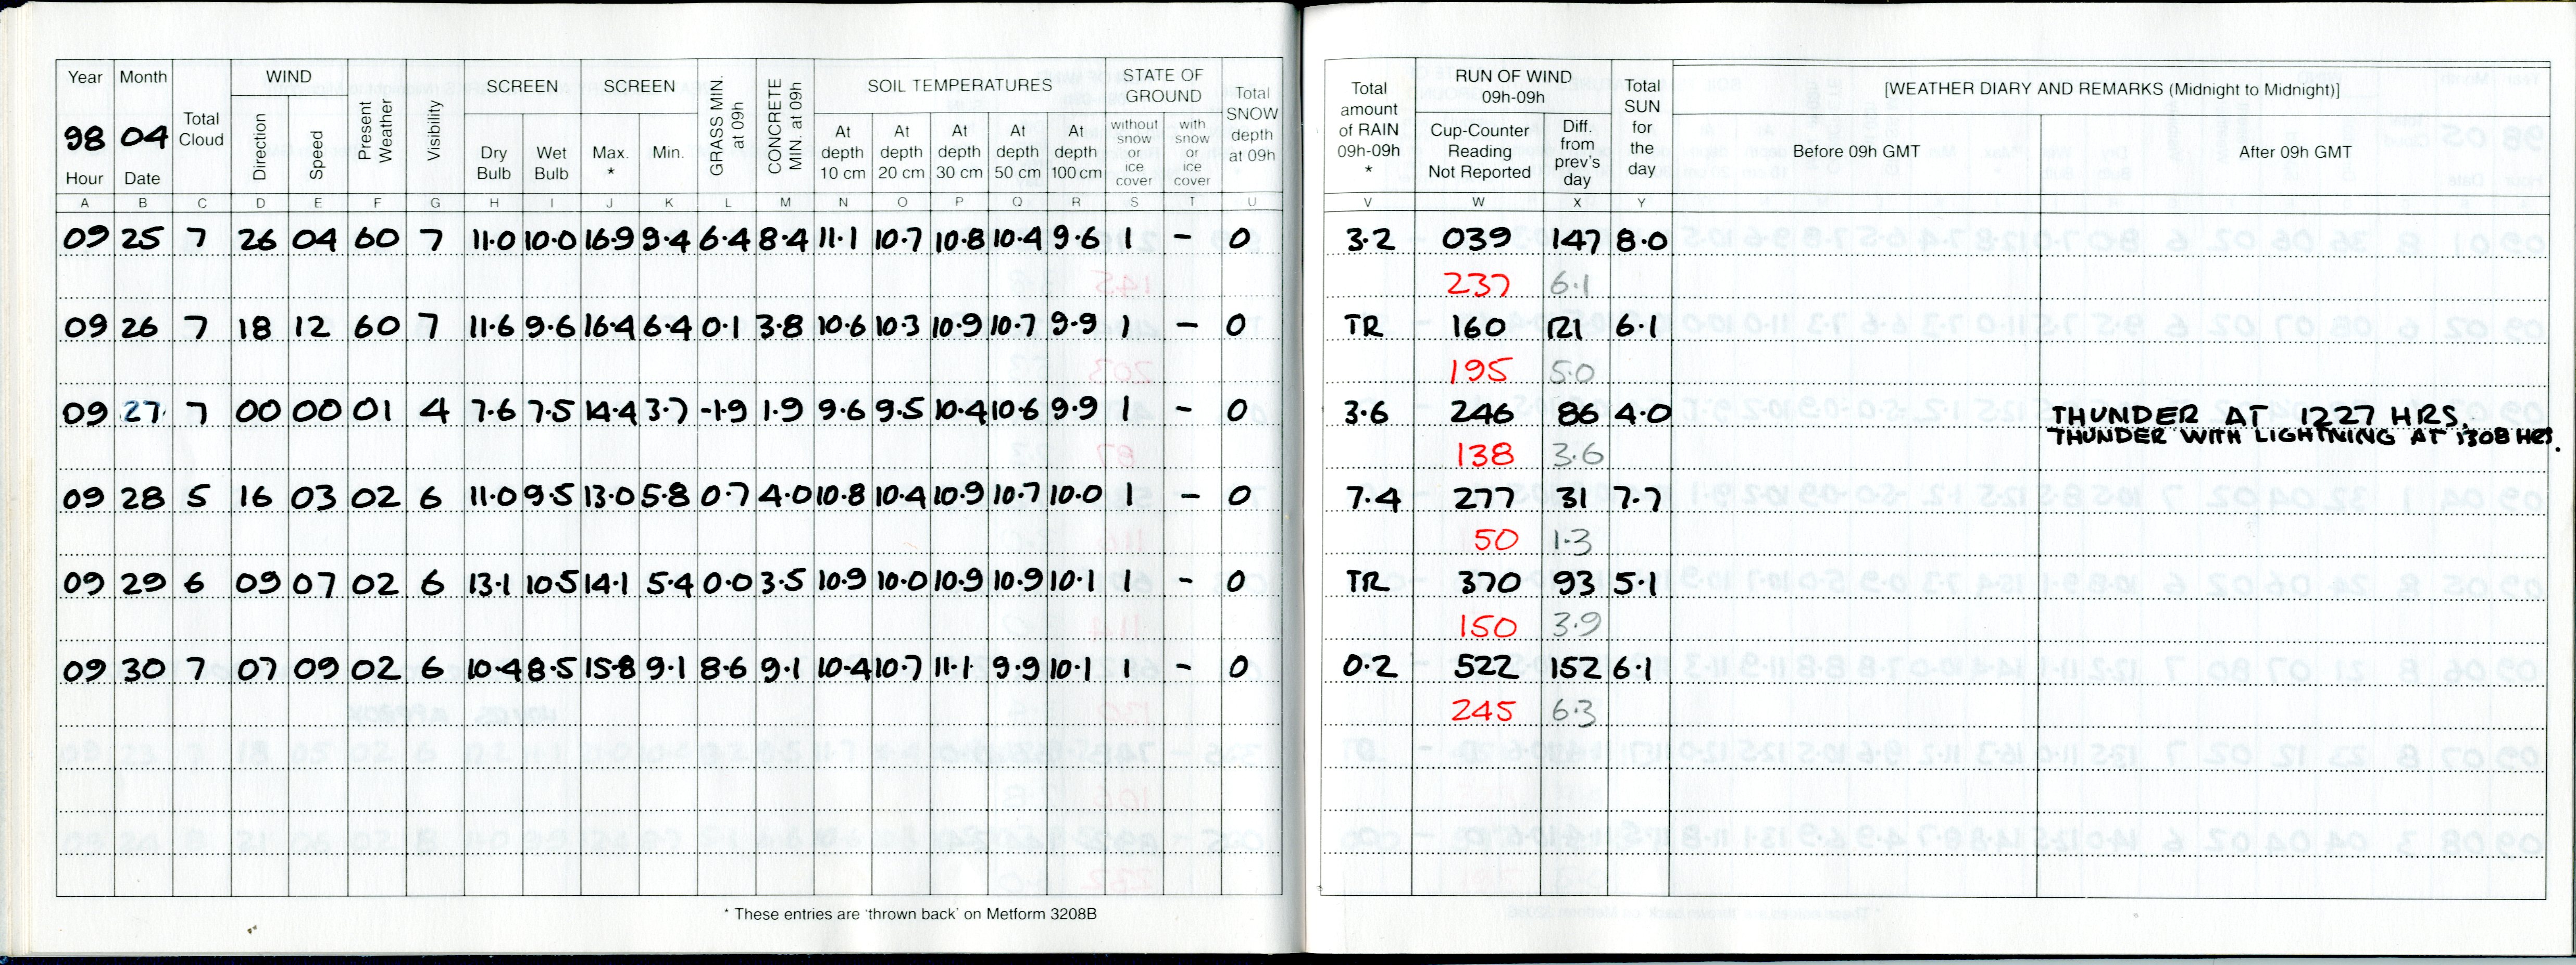 Year Month Total Cloud WIND Present Weather Visibility SCREEN SCREEN GRASS MIN. at 09h CONCRETE MIN. at 09h SOIL TEMPERATURES STATE OF GROUND Total SNOW depth at 09h Total amount of RAIN 09h-09h * RUN OF WIND 09h-09h Total SUN for the day [WEATHER DIARY AND REMARKS (Midnight to Midnight)]
98 04 Direction Speed Dry Bulb Wet Bulb Max. * Min. At depth 10 cm At depth 20 cm At depth 30 cm At depth 50 cm At depth 100 cm without snow or ice cover with snow or ice cover Cup-Counter Reading Not Reported Diff. from prev's day Before 09h GMT After 09h GMT
Hour Date
A B C D E F G H I J K L M N O P Q R S T U V W X Y
09 25 7 26 04 60 7 11.0 10.0 16.9 9.4 6.4 8.4 11.1 10.7 10.8 10.4 9.6 1 – 0 3.2 039 147 8.0
237 6.1
09 26 7 18 12 60 7 11.6 9.6 16.4 6.4 0.1 3.8 10.6 10.3 10.9 10.7 9.9 1 – 0 TR 160 121 6.1
195 5.0
09 27 7 00 00 01 4 7.6 7.5 14.4 3.7 -1.9 1.9 9.6 9.5 10.4 10.6 9.9 1 – 0 3.6 246 86 4.0 THUNDER AT 1227 HRS.
THUNDER WITH LIGHTNING AT 1308 HRS.
138 3.6
09 28 5 16 03 02 6 11.0 9.5 13.0 5.8 0.7 4.0 10.8 10.4 10.9 10.7 10.0 1 – 0 7.4 277 31 7.7
50 1.3
09 29 6 09 07 02 6 13.1 10.5 14.1 5.4 0.0 3.5 10.9 10.0 10.9 10.9 10.1 1 – 0 TR 370 93 5.1
150 3.9
09 30 7 07 09 02 6 10.4 8.5 15.8 9.1 8.6 9.1 10.4 10.7 11.1 9.9 10.1 1 – 0 0.2 522 152 6.1
245 6.3
* These entries are 'thrown back' on Metform 3208B